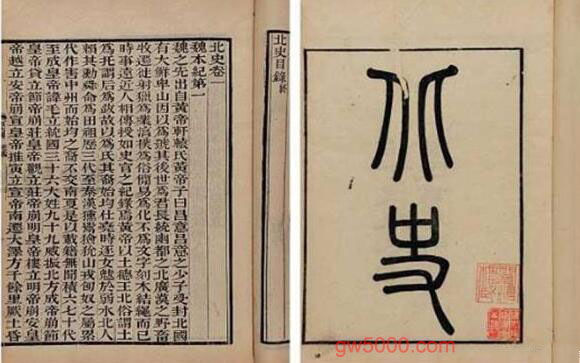 北史
北史目錄終
北史卷一
魏本紀第一
魏之先出自黃帝軒轅氏黃帝子曰昌意昌意之少子受封北國
有大鮮卑山因以爲號其後世爲君長統幽都之北廣漠之野畜
牧遷徙射獵爲業淳樸爲俗簡易爲化不爲文字刻木結繩而已
時事遠近人相傳授如史官之紀錄焉黃帝以土德王北俗謂土
爲托謂后爲跋故以爲氏其裔始均仕堯時逐女魃於弱水北人
賴其勳舜命爲田祖歷三代至秦漢獯鬻獫狁山戎匈奴之屬累
代作害中州而始均之裔不交南夏是以載籍無聞積六七十代
至成皇帝諱毛立統國三十六大姓九十九威振北方成帝崩節
皇帝貸立節帝崩莊皇帝觀立莊帝崩明皇帝樓立明帝崩安皇
帝越立安帝崩宣皇帝推寅立宣帝南遷大澤方千餘里厥土昏
gw5000.com